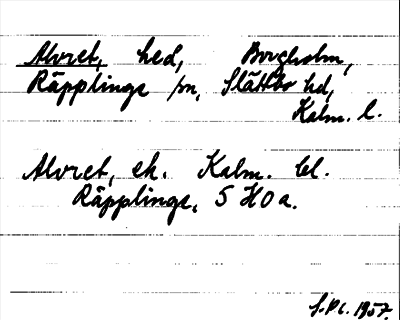 Alvret, hed, Borgholm,
Räpplinge sn, Slättbo hd,
Kalm. l.
Alvret, ek. Kalm. bl.
Räpplinge, 5 H 0 a.
1957.